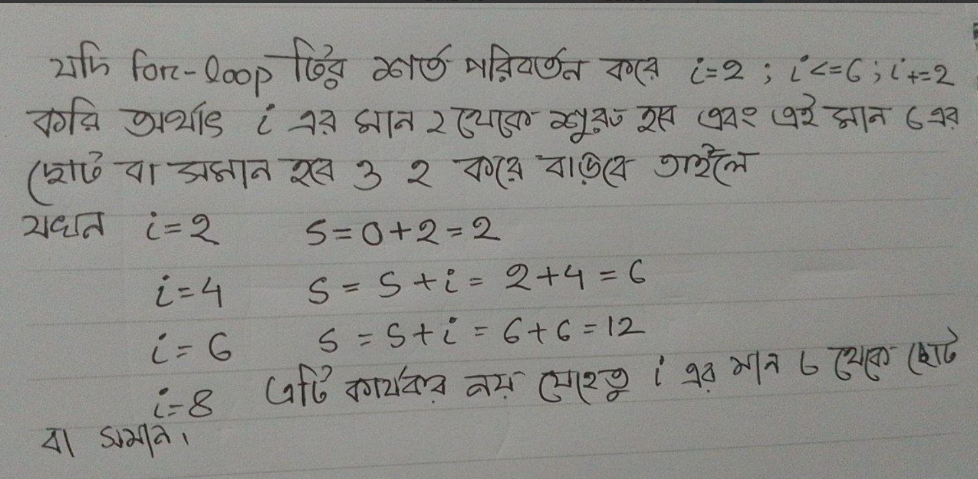 যদি for-loop টির শর্ত পরিবর্তন করে i=2 ; i<=6 ; i+=2
করি অর্থাৎ i এর মান ২ থেকে শুরু হয় এবং এই মান ৬ এর
ছোট বা সমান হবে ও ২ করে বাড়বে তাহলে
যখন i=2 S=0+2=2
i=4 S = S+i = 2+4=6
i=6 S = S+i = 6+6=12
i=8 এটি কার্যকর নয় যেহেতু i এর মান ৬ থেকে ছোট
বা সমান।